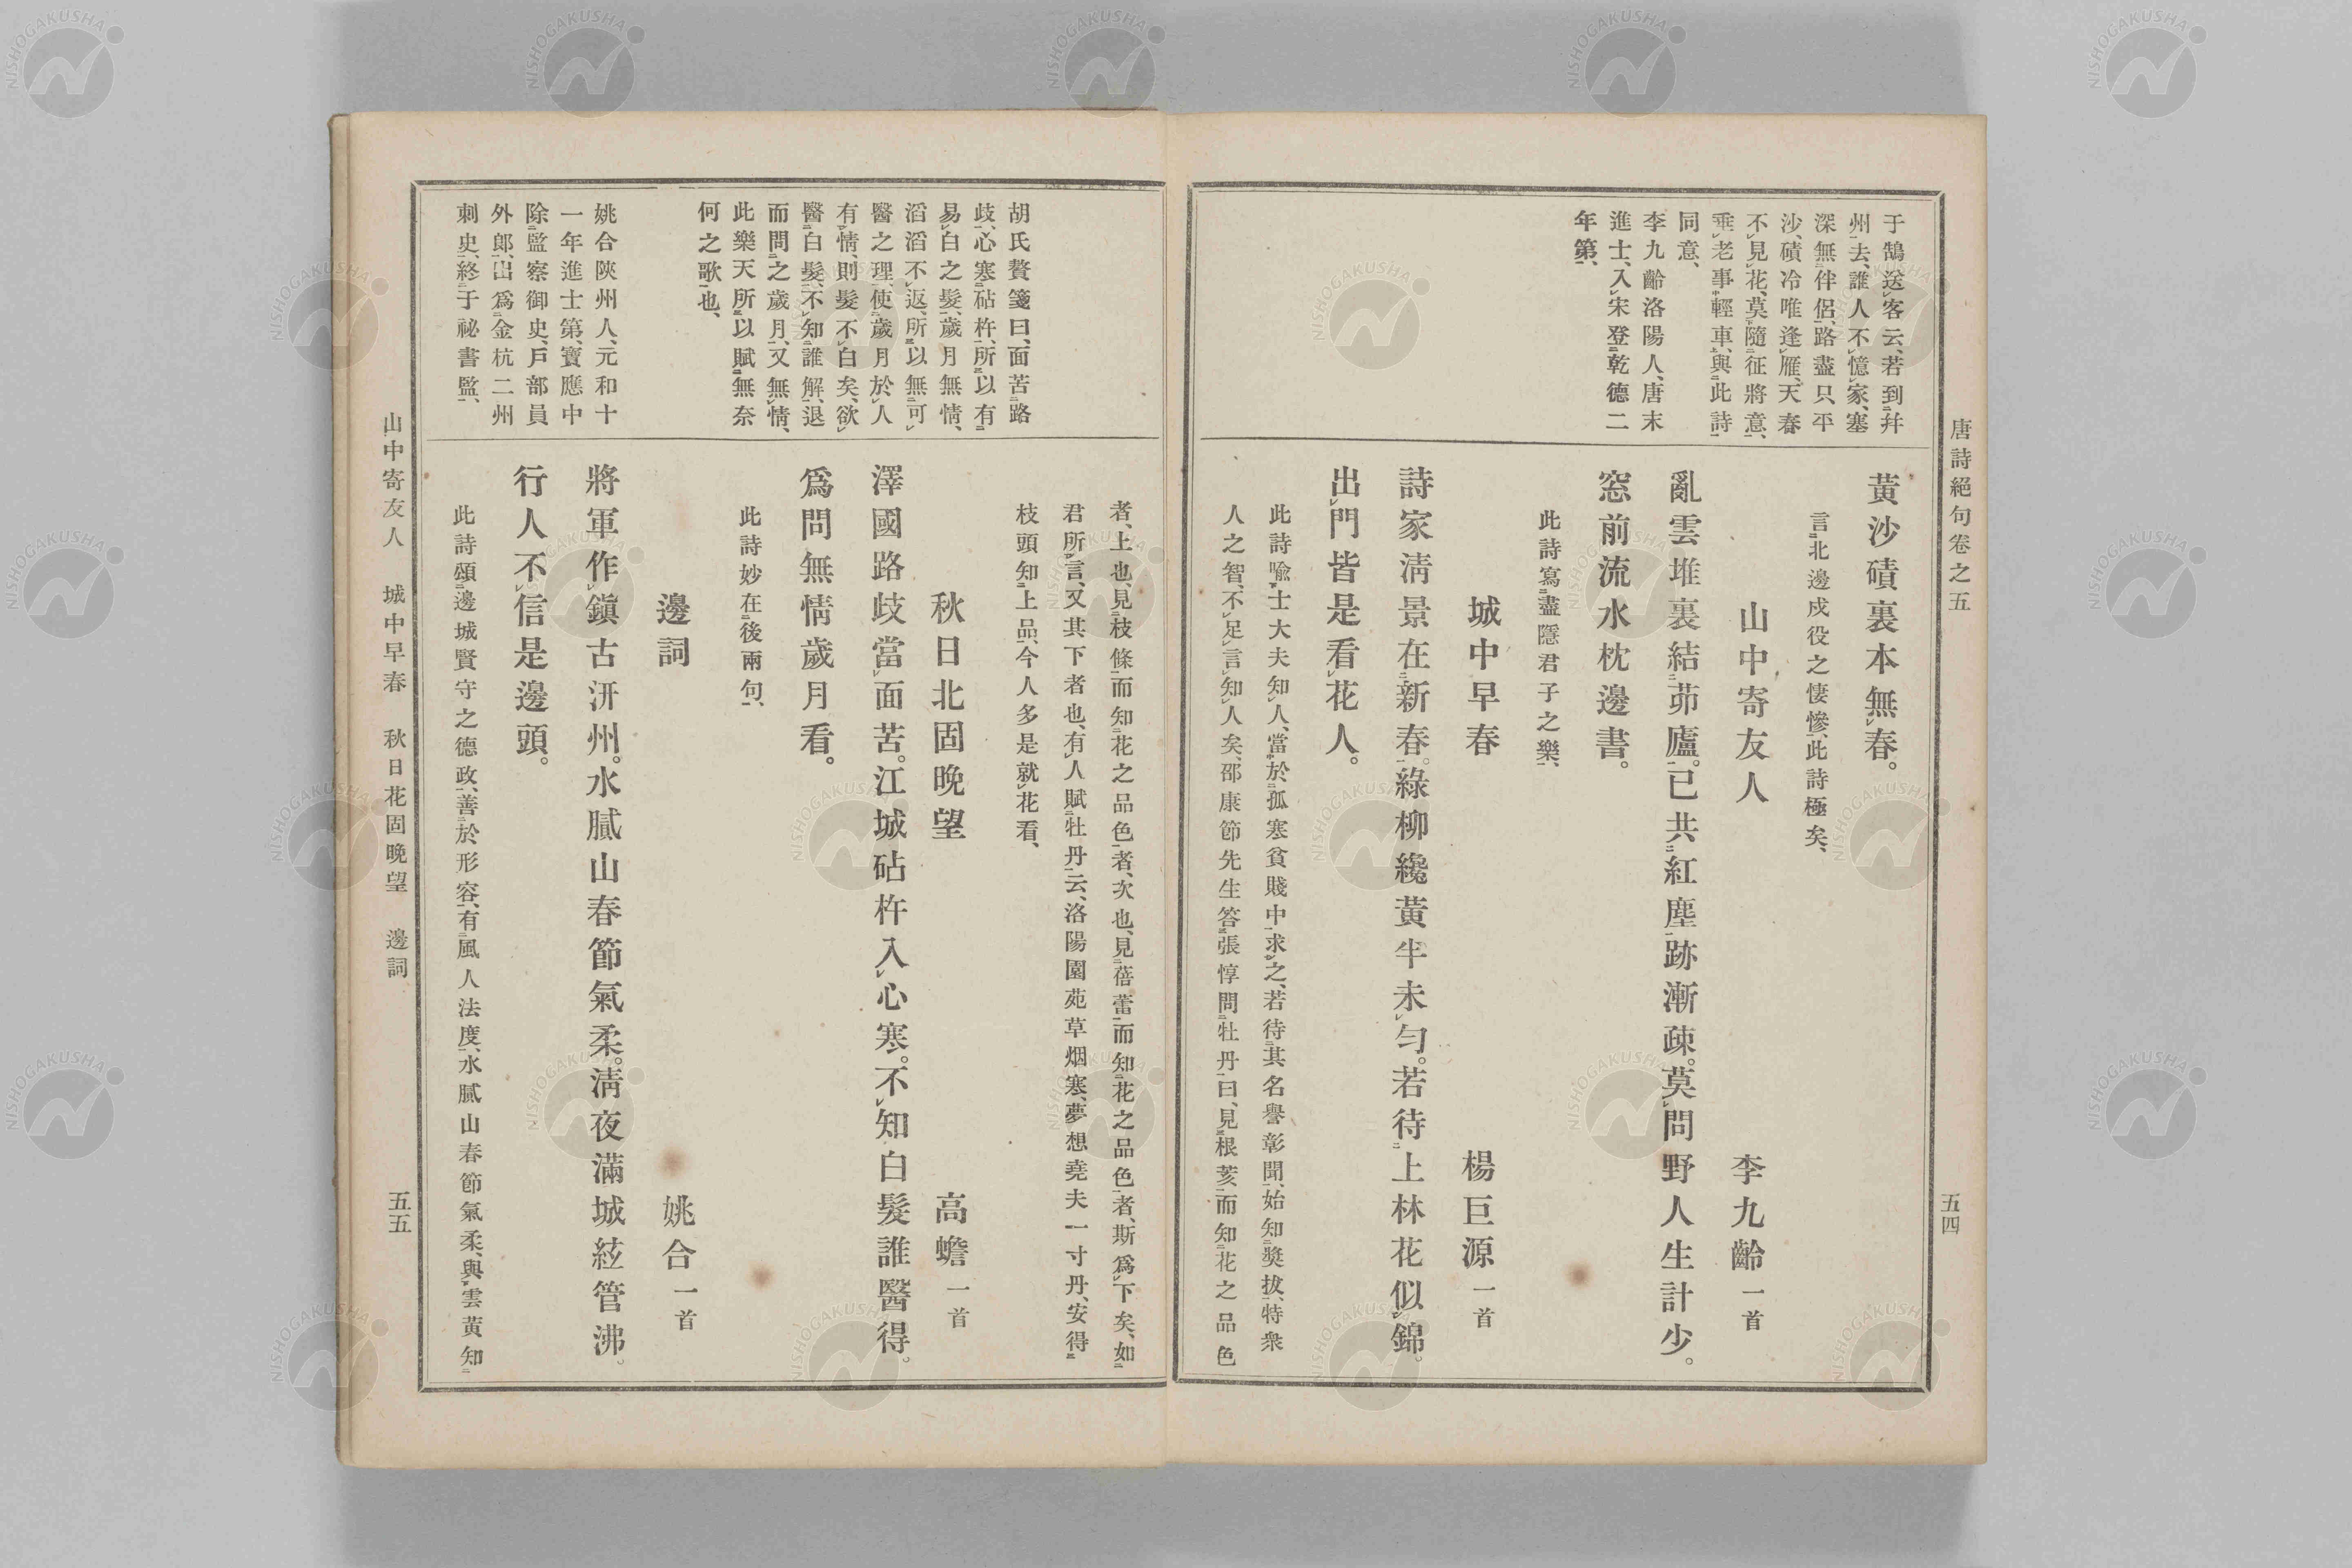 唐詩絕句卷之五
五四
于鵠送客云、若到幷
州去、誰人不憶家、塞
深無伴侶、路盡只平
沙、磧冷唯逢雁、天春
不見花、莫隨征將意、
垂老事輕車、與此詩
同意、
李九齡洛陽人、唐末
進士、入宋登乾德二
年第、
黃沙磧裏本無春。
言北邊戍役之悽慘、此詩極矣、
山中寄友人 李九齡一首
亂雲堆裏結茆廬。已共紅塵跡漸疎。莫問野人生計少。
窓前流水枕邊書。
此詩寫盡隱君子之樂、
城中早春 楊巨源一首
詩家淸景在新春。綠柳纔黃半未勻。若待上林花似錦。
出門皆是看花人。
此詩喩士大夫知人、當於孤寒貧賤中求之、若待其名譽彰聞、始知奬拔、特衆
人之智、不足言知人矣、邵康節先生答張惇問牡丹曰、見根荄而知花之品色
者、上也、見枝條而知花之品色者、次也、見蓓蕾而知花之品色者、斯爲下矣、如
君所言、又其下者也、有人賦牡丹云、洛陽園苑草烟寒、夢想堯夫一寸丹、安得
枝頭知上品、今人多是就花看、
胡氏贅箋曰、面苦路
歧、心寒砧杵、所以有
易白之髮、歲月無情、
滔滔不返、所以無可
醫之理、使歲月於人
有情、則髮不白矣、欲
醫白髮、不知誰解、退
而問之歲月、又無情、
此樂天所以賦無奈
何之歌也、
姚合陝州人、元和十
一年進士第、寶應中
除監察御史、戶部員
外郞、出爲金杭二州
刺史、終于祕書監、
秋日北固晩望 高蟾一首
澤國路歧當面苦。江城砧杵入心寒。不知白髮誰醫得。
爲問無情歲月看。
此詩妙在後兩句、
邊詞 姚合一首
將軍作鎭古汧州。水膩山春節氣柔。淸夜滿城絃管沸。
行人不信是邊頭。
此詩頌邊城賢守之德政、善於形容、有風人法度、水膩山春節氣柔、與雲黃知
山中寄友人 城中早春 秋日花固晩望 邊詞
五五